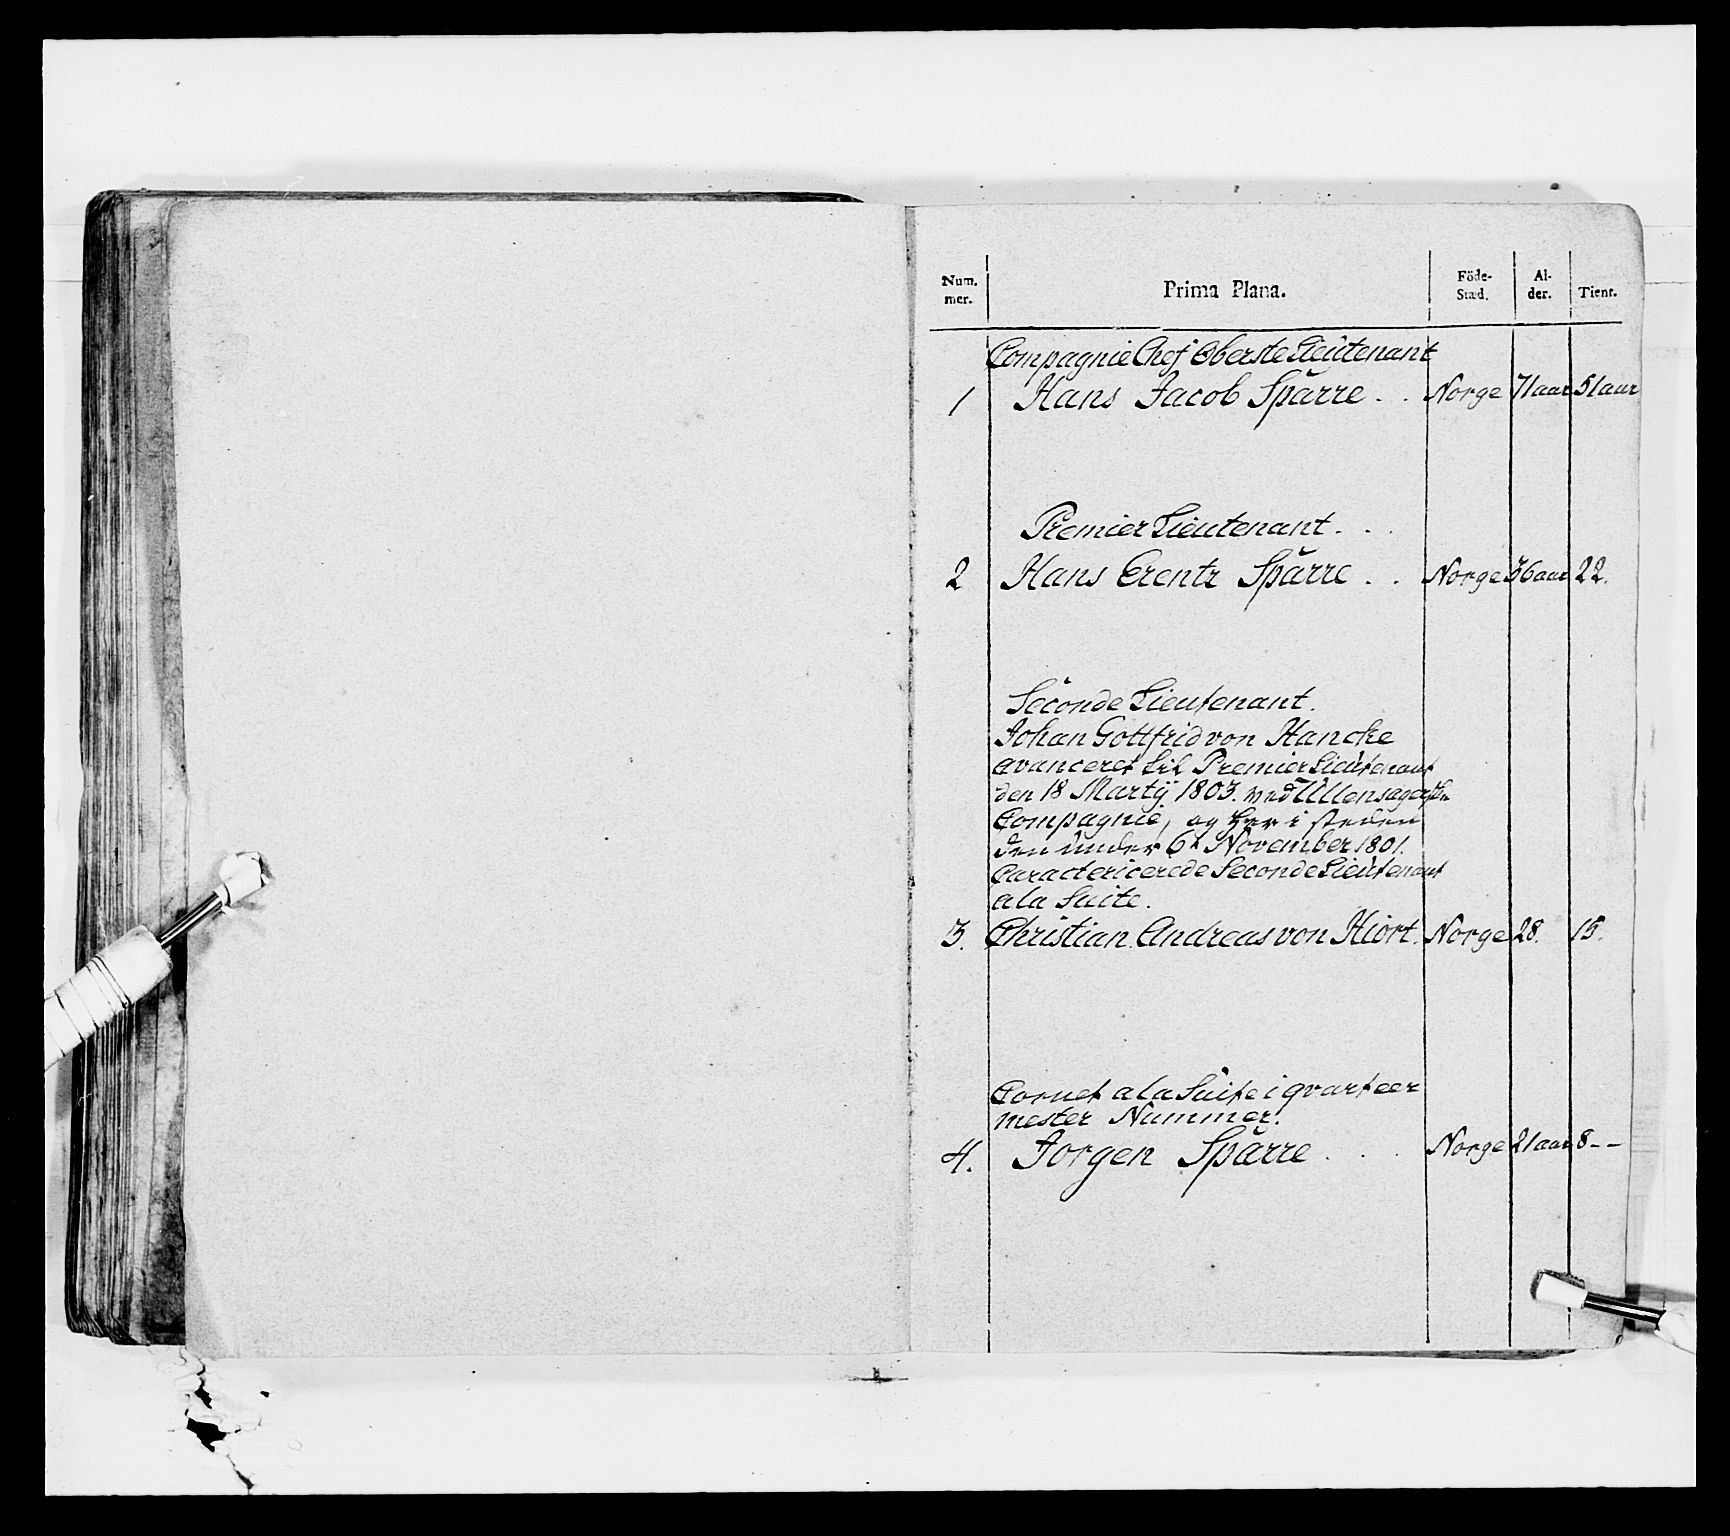 Num-mer. Prima Plana. Föde-Stæd. Al-der. Tient.
Compagnie Chef Oberste Lieutenant
1 Hans Jacob Sparre . . Norge 71 aar 51 aar
Premier Lieutenant . . .
2 Hans Erentz Sparre . . Norge 36 aar 22.
Seconde Lieutenant.
Johan Gottfrid von Hancke
avanceret til Premier Lieutenant
den 18 Martÿ 1803. ved Ullensagerske
Compagnie, og her i steden
den under 6t November 1801.
Caractericerede Seconde Lieutenant
a la Suite.
3. Christian Andreas von Hiort. Norge 28. 15.
Cornet a la Suite i qvarteer
mester Nummer.
4. Jorgen Sparre . . . Norge 21 aar 8 - -